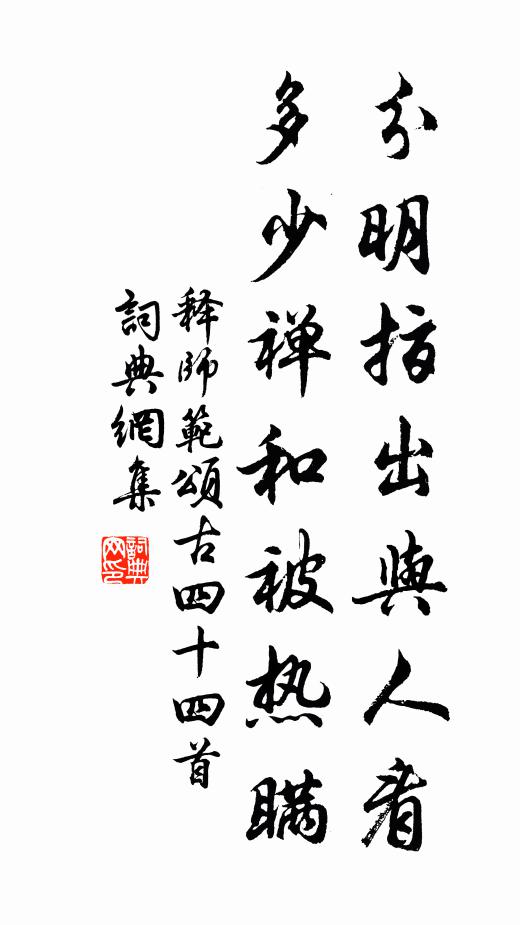 分明指出與人看
多少禅和被热瞞
释師範頌古四十四首
詞典網集
詞典
网印